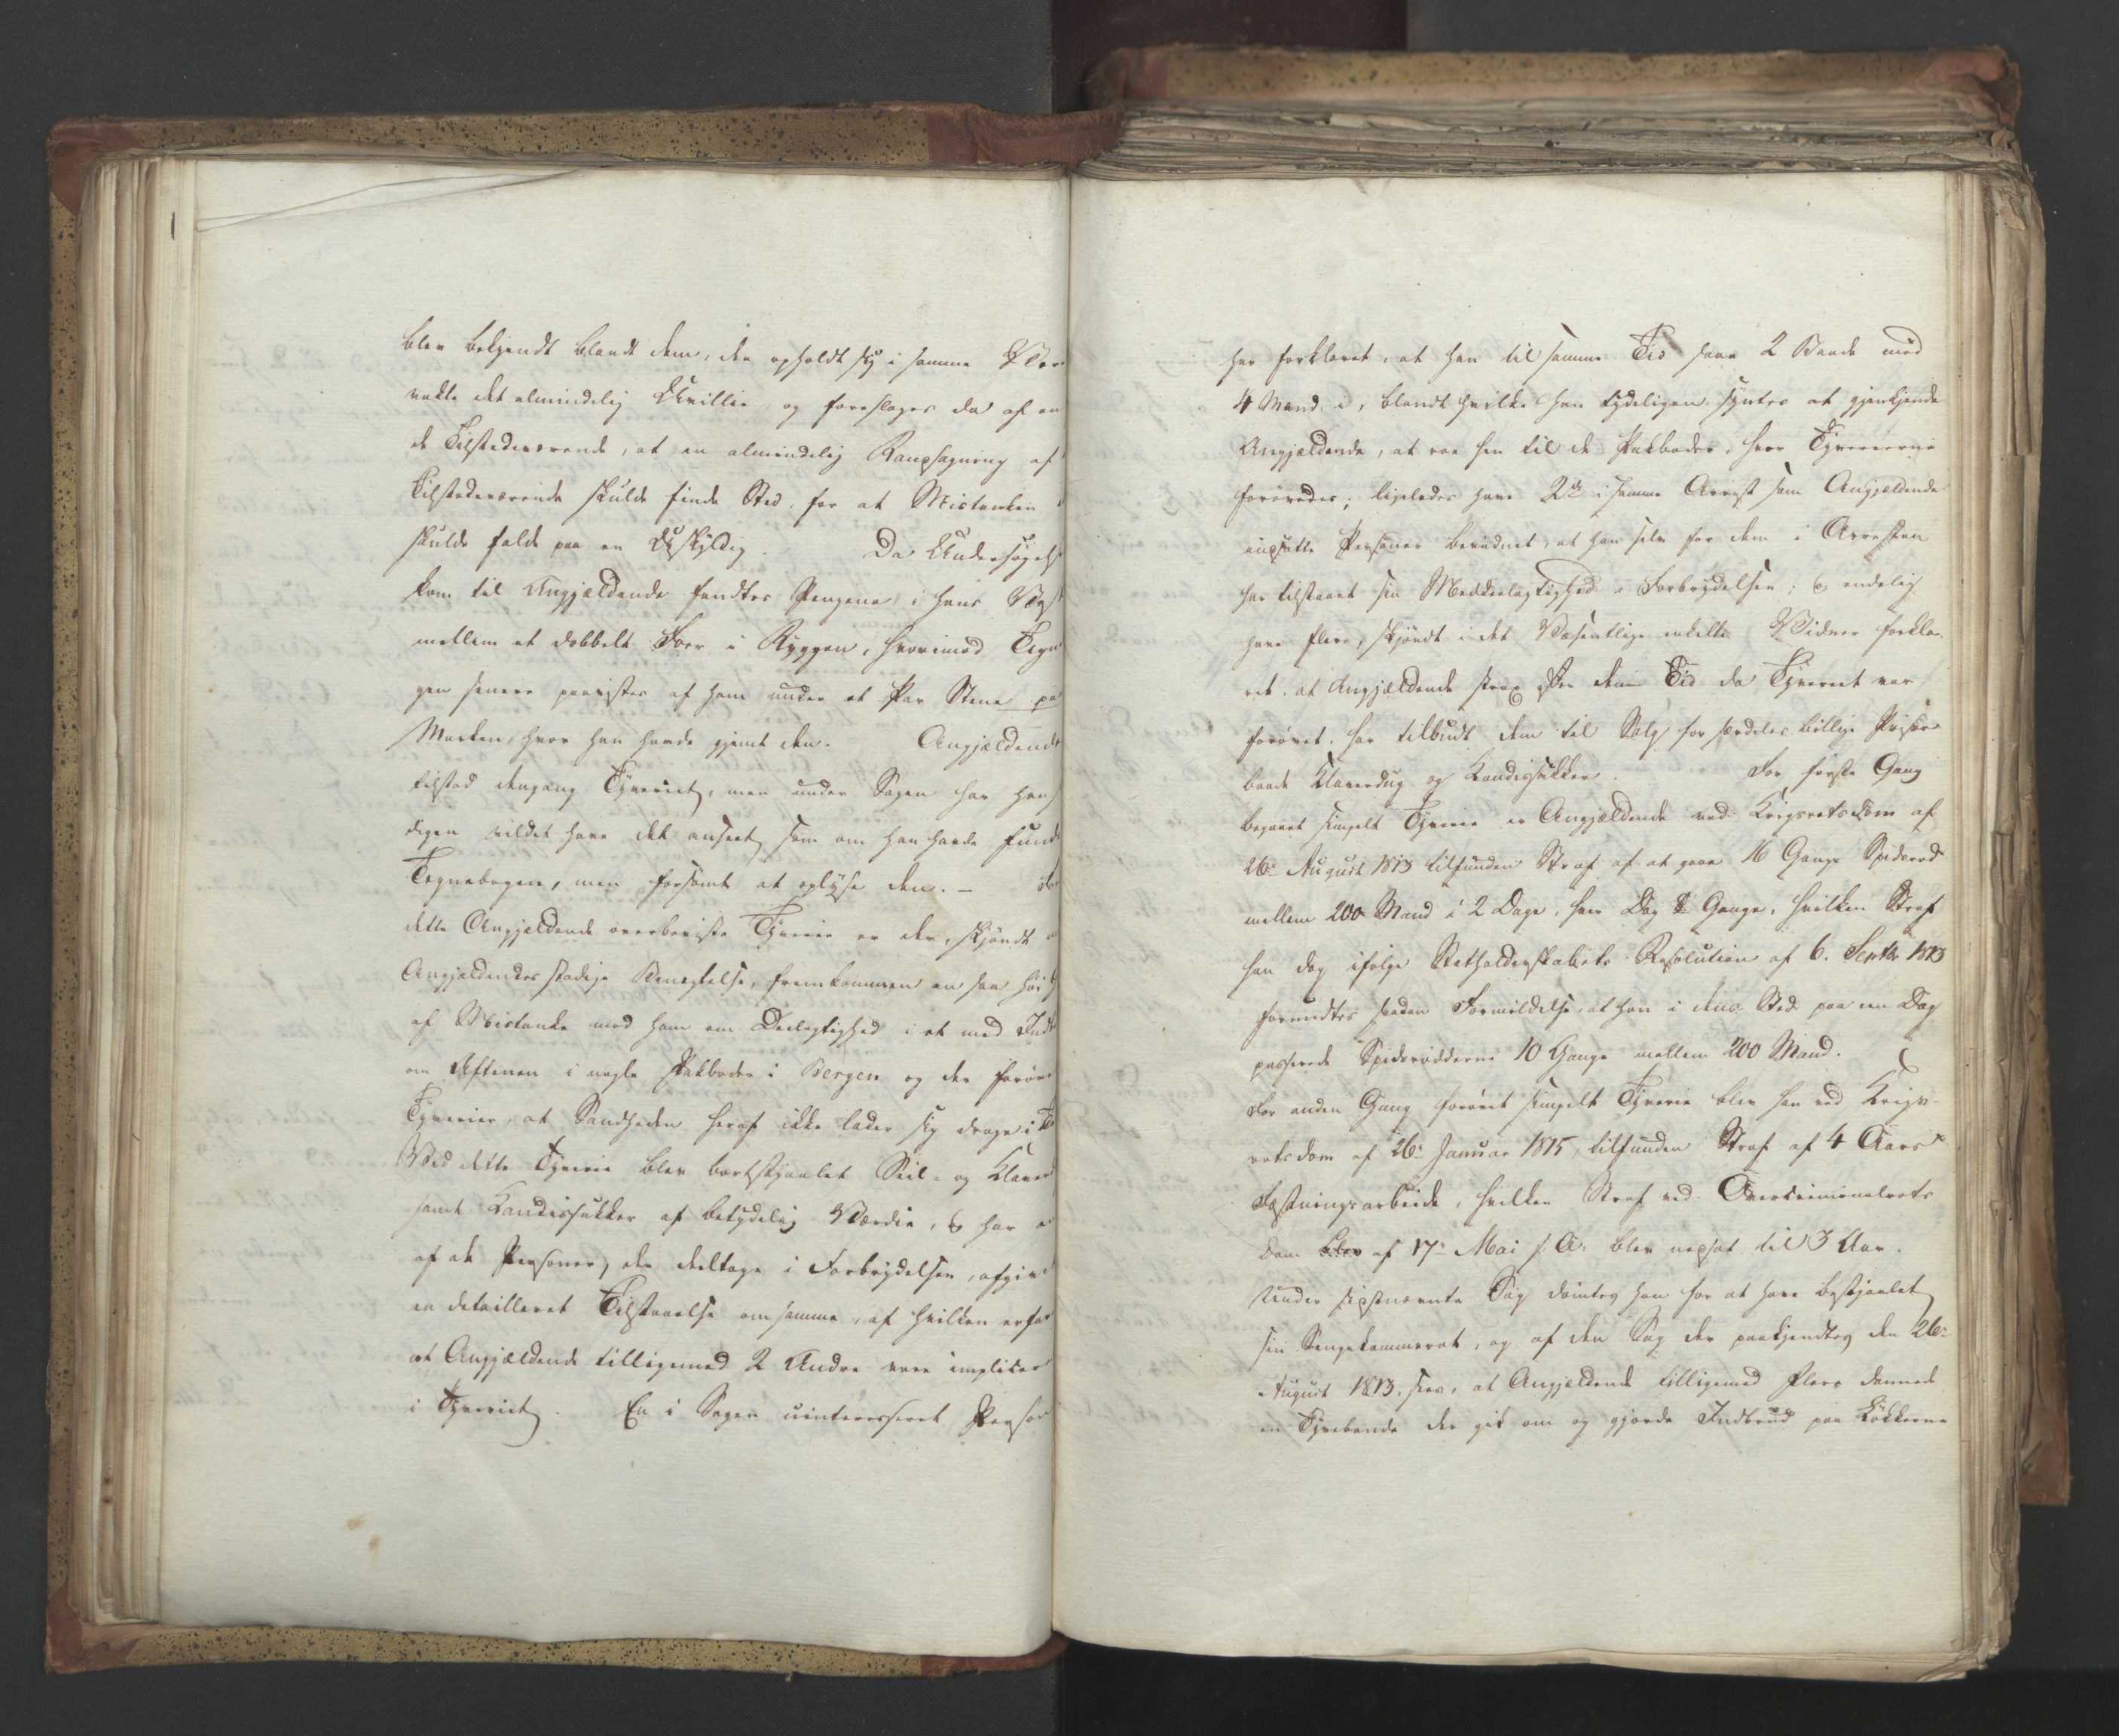 blev bekjendt blandt dem, der opholdt sig i samme
vakte det almindelig Uvillie, og foresloges da af en
de Tilstedeværende, at en almindelig Randsagning af
Tilstedeværende skulde finde Sted, for at Mistanken
skulde falde paa en Uskyldig. Da Undersøgels
kom til Angjældende fandtes Pengene i hans Vest
mellem et dobbelt Foer i Ryggen, hvorimod Tegn
gen senere paavistes af ham under et Par Stene paa
Marken, hvor han havde gjemt den. Angjældende
tilstod dengang Tyveriet, men under Sagen har han
digen villet have det anseet, som om han havde fund
Tegnebogen, men forsømt at oplyse den. –
dette Angjældende overbeviste Tyverie er der, skjøndt
Angjældendes stadige Benægtelse, fremkommen en saa høi
af Mistanke mod ham om Deelagtighed i et med Ind
om Aftenen i nogle Pakboder i Bergen og der forøv
Tyverier, at Sandheden heraf ikke lader sig drage i
Ved dette Tyverie blev bortstjaalet Seil- og Klaver
samt Kandissukker af betydelig Værdie, & har
af de Personer, der deeltoge i Forbrydelsen, afgivet
en detailleret Tilstaaelse om samme, af hvilken erfar
at Angjældende tilligemed 2 Andre vare implicer
i Tyveriet. En i Sagen uinteresseret Person
har forklaret, at han til samme Tid saae 2 Baade med
4 Mand i, blandt hvilke han tydeligen syntes at gjenkjende
Angjældende, at roe hen til de Pakboder, hvor Tyverierne
forøvedes; ligeledes have 2de i samme Arrest som Angjældende
insatte Personer bevidnet, at han selv for dem i Arresten
har tilstaaet sin Meddeelagtighed i Forbrydelsen; & endelig
have flere, skjøndt i det Væsentlige enkelte Vidner forkla-
ret, at Angjældende strax efter den Tid da Tyveriet var
forøvet, har tilbudt dem til Salg for særdeles billige Priser
baade Klaverdug og Kandissukker. For første Gang
begaaet simpelt Tyverie er Angjældende ved Krigsretsdom af
26de August 1813 tilfunden Straf af at gaae 16 Gange Spidsrod
mellem 200 Mand i 2 Dage, hver Dag 8 Gange, hvilken Straf
han dog ifølge Statholderskabets Resolution af 6. Septbr 1813
forundtes saadan Formildelse, at han i dens Sted paa een Dag
passerede Spidsrødderne 10 Gange mellem 200 Mand.
For anden Gang forøvet simpelt Tyverie blev han ved Krigs-
retsdom af 26de Januar 1815, tilfunden Straf af 4 Aars
Fæstningsarbeide, hvilken Straf ved Overkriminalrets
Dom blev af 17de Mai s. A. blev nedsat til 3 Aar.
Under sidstnævnte Sag dømtes han for at have bestjaalet
sin Sengekammerat, og af den Sag der paakjendtes den 26de
August 1813, sees, at Angjældende tilligemed Flere dannede
en Tyvebande der gik om og gjorde Indbrud paa Løkkerne